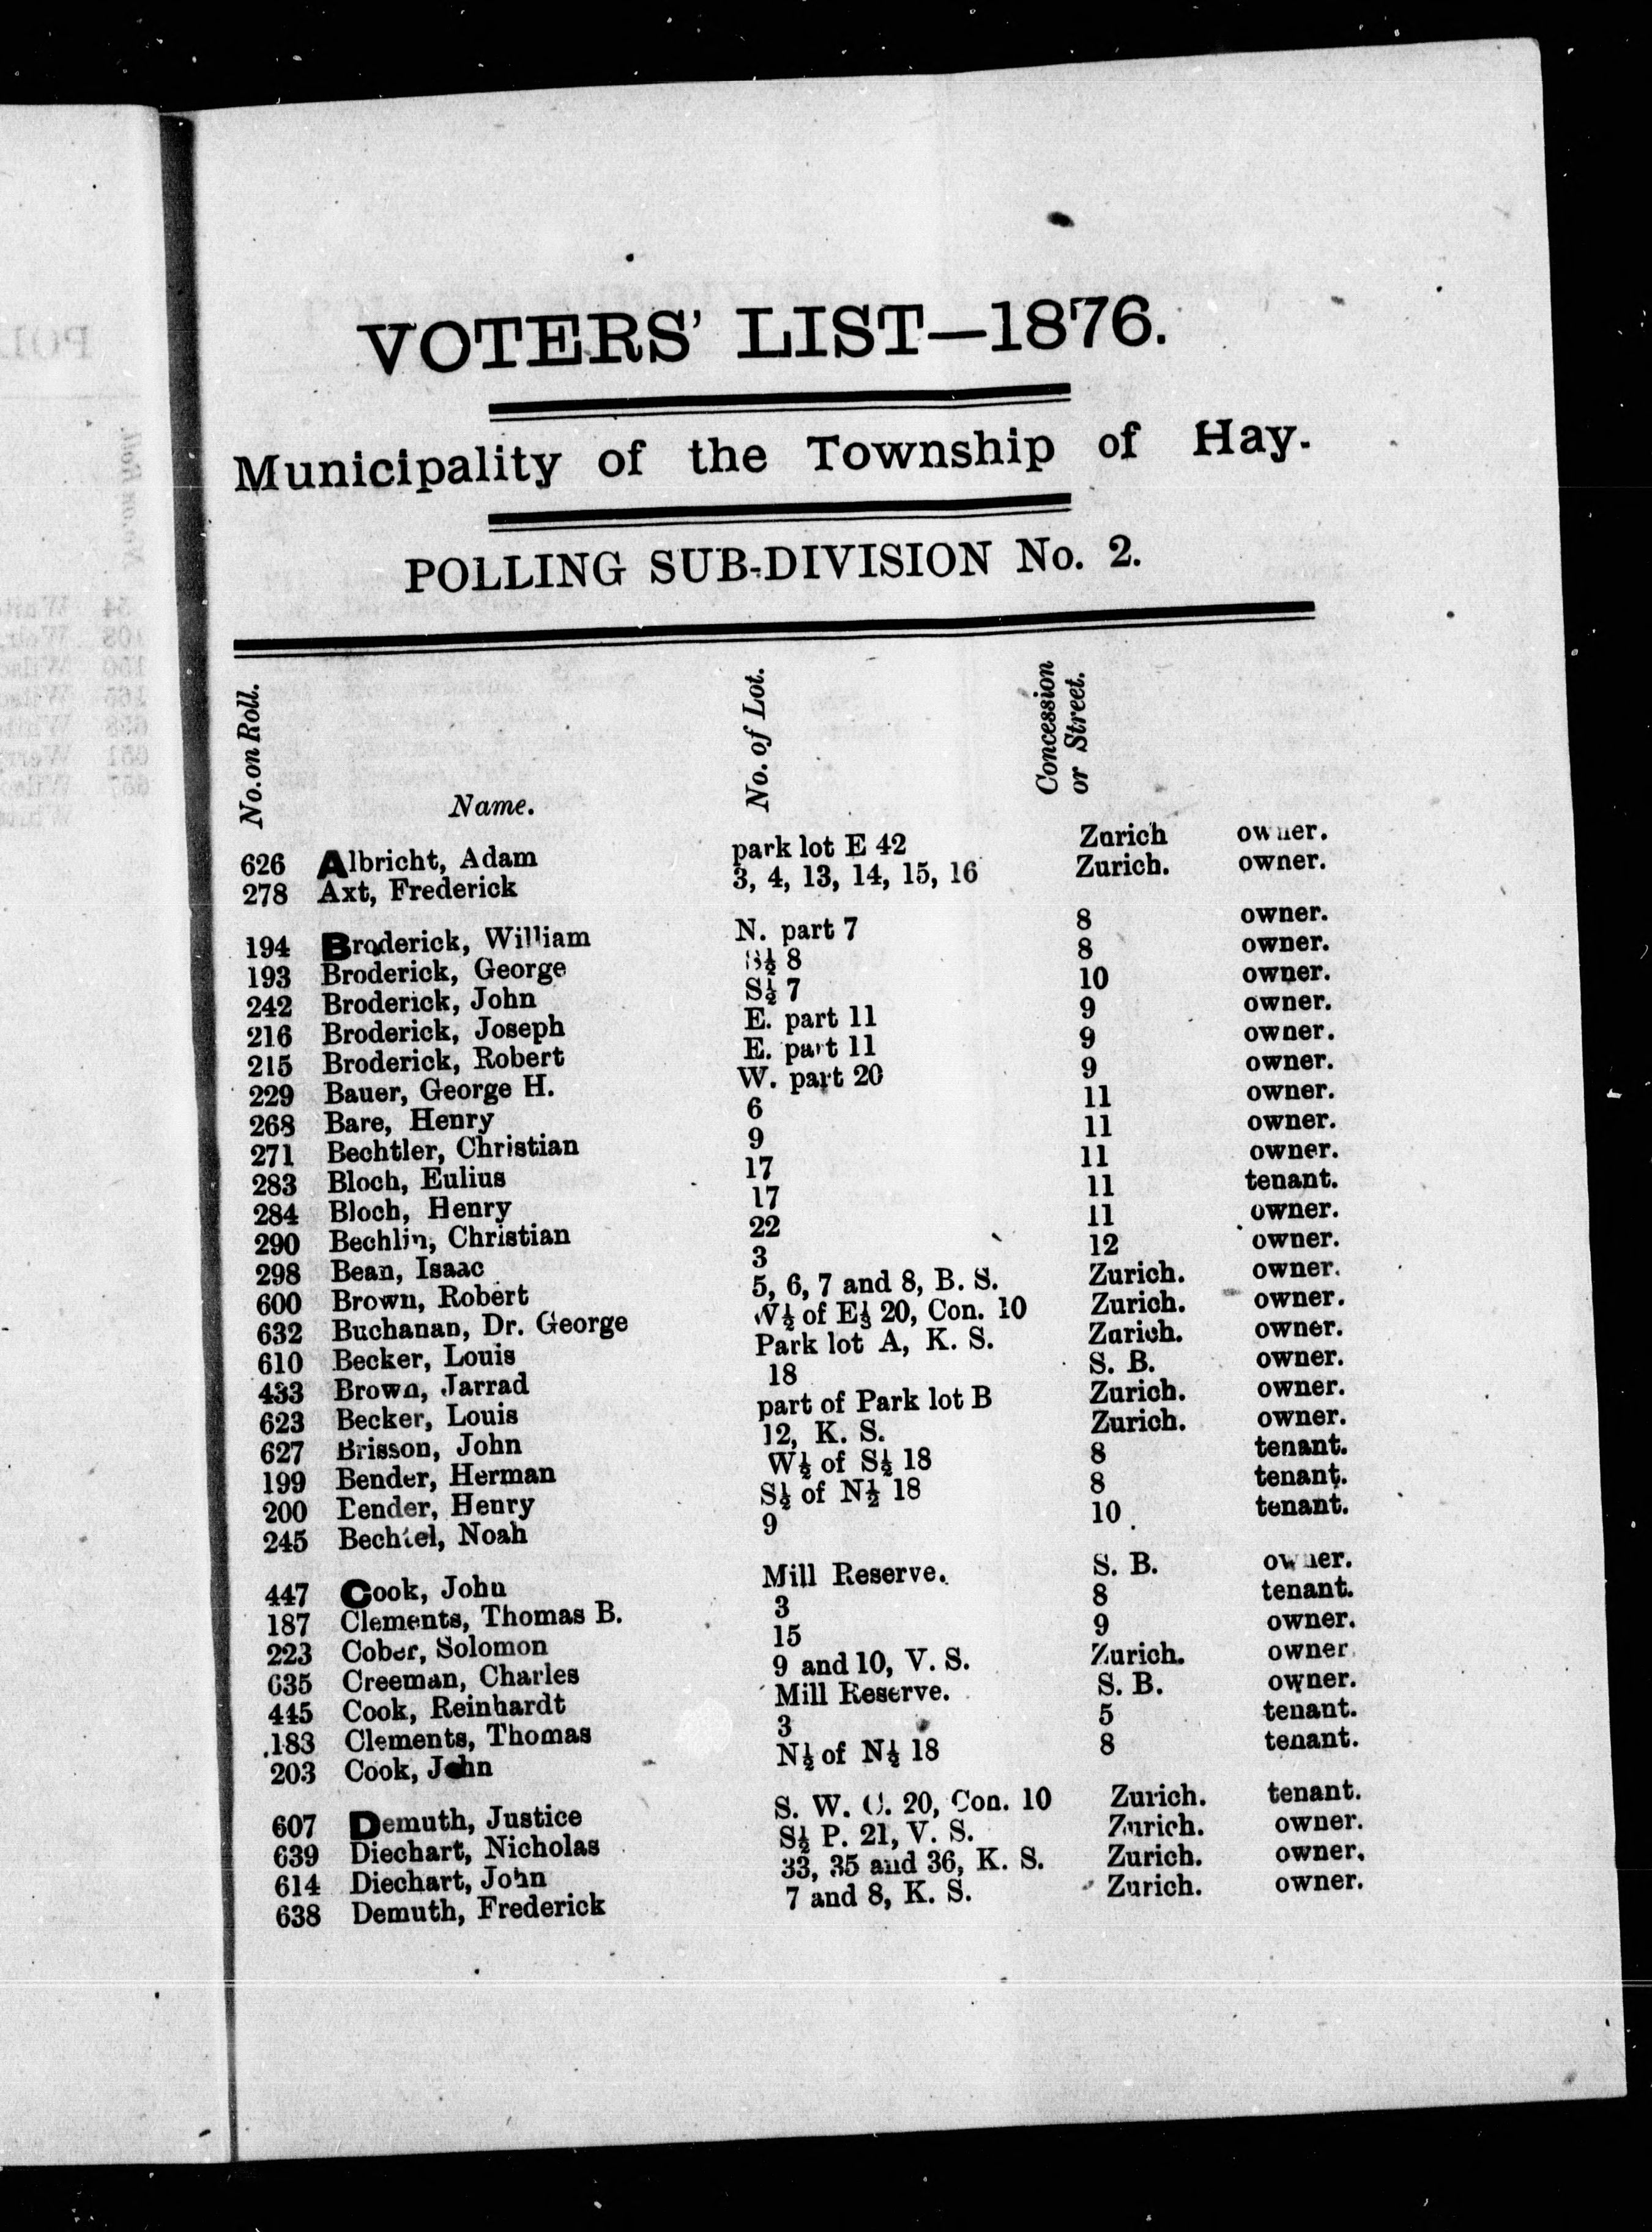 VOTERS' LIST—1876.
Municipality of the Township of Hay.
POLLING SUB-DIVISION No. 2.
No. on Roll. Name. No. of Lot. Concession or Street.
626 Albricht, Adam park lot E 42 Zurich owner.
278 Axt, Frederick 3, 4, 13, 14, 15, 16 Zurich. owner.
194 Broderick, William N. part 7 8 owner.
193 Broderick, George S½ 8 8 owner.
242 Broderick, John S½ 7 10 owner.
216 Broderick, Joseph E. part 11 9 owner.
215 Broderick, Robert E. part 11 9 owner.
229 Bauer, George H. W. part 20 9 owner.
268 Bare, Henry 6 11 owner.
271 Bechtler, Christian 9 11 owner.
283 Bloch, Eulius 17 11 owner.
284 Bloch, Henry 17 11 tenant.
290 Bechlin, Christian 22 11 owner.
298 Bean, Isaac 3 12 owner.
600 Brown, Robert 5, 6, 7 and 8, B. S. Zurich. owner.
632 Buchanan, Dr. George W½ of E⅓ 20, Con. 10 Zurich. owner.
610 Becker, Louis Park lot A, K. S. Zurich. owner.
433 Brown, Jarrad 18 S. B. owner.
623 Becker, Louis part of Park lot B Zurich. owner.
627 Brisson, John 12, K. S. Zurich. owner.
199 Bender, Herman W½ of S½ 18 8 tenant.
200 Bender, Henry S½ of N½ 18 8 tenant.
245 Bechtel, Noah 9 10 tenant.
447 Cook, John Mill Reserve. S. B. owner.
187 Clements, Thomas B. 3 8 tenant.
223 Cober, Solomon 15 9 owner.
635 Creeman, Charles 9 and 10, V. S. Zurich. owner
445 Cook, Reinhardt Mill Reserve. S. B. owner.
183 Clements, Thomas 3 5 tenant.
203 Cook, John N½ of N½ 18 8 tenant.
607 Demuth, Justice S. W. C. 20, Con. 10 Zurich. tenant.
639 Diechart, Nicholas S½ P. 21, V. S. Zurich. owner.
614 Diechart, John 33, 35 and 36, K. S. Zurich. owner.
638 Demuth, Frederick 7 and 8, K. S. Zurich. owner.